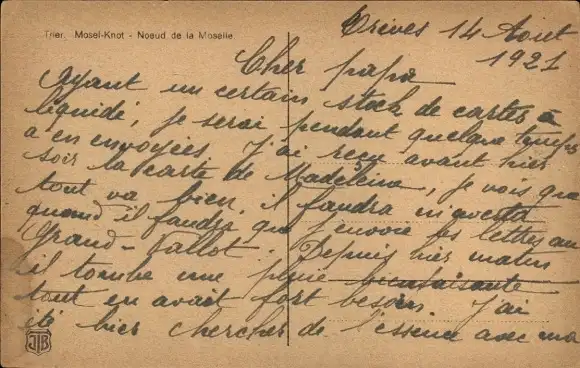 Trier, Mosel-Knot - Noeud de la Moselle
Trèves 14 Août
1921
Cher papa
Ayant un certain stock de cartes à
liquidé, je serai pendant quelque temps
a en envoyées. J'ai reçu avant hier
soir la carte de Madeleine, je vois que
tout va bien, il faudra m'avertir
quand il faudra que j'envoie les lettres au
Grand-Jallot. Depuis hier matin
il tombe une pluie bienfaisante
tout en avait fort besoin. J'ai
été hier chercher de l'essence avec ma
JTB